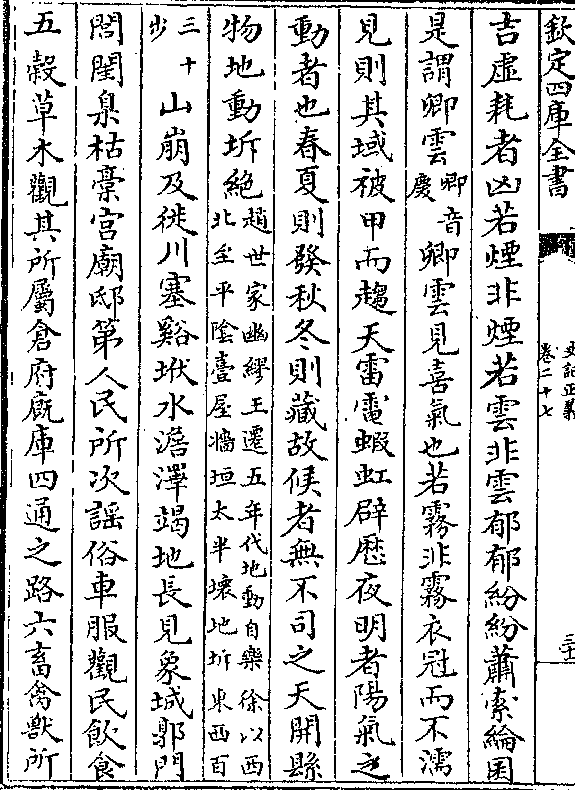 欽定四庫全書
史記正義
卷二十七
吉虛耗者凶若煙非煙若雲非雲郁郁紛紛蕭索綸囷
是謂卿雲卿音慶卿雲見喜氣也若霧非霧衣冠而不濡
見則其域被甲而趨天雷電蝦虹辟歷夜明者陽氣之
動者也春夏則發秋冬則藏故候者無不司之天開縣
物地動坼絶趙世家幽繆王遷五年代地動自樂徐以西北至平陰臺屋牆垣太半壞地坼東西百
三十步山崩及徙川塞谿垘水澹澤竭地長見象城郭門
閭閨臬枯槀宫廟邸第人民所次謡俗車服觀民飲食
五穀草木觀其所屬倉府廐庫四通之路六畜禽獸所